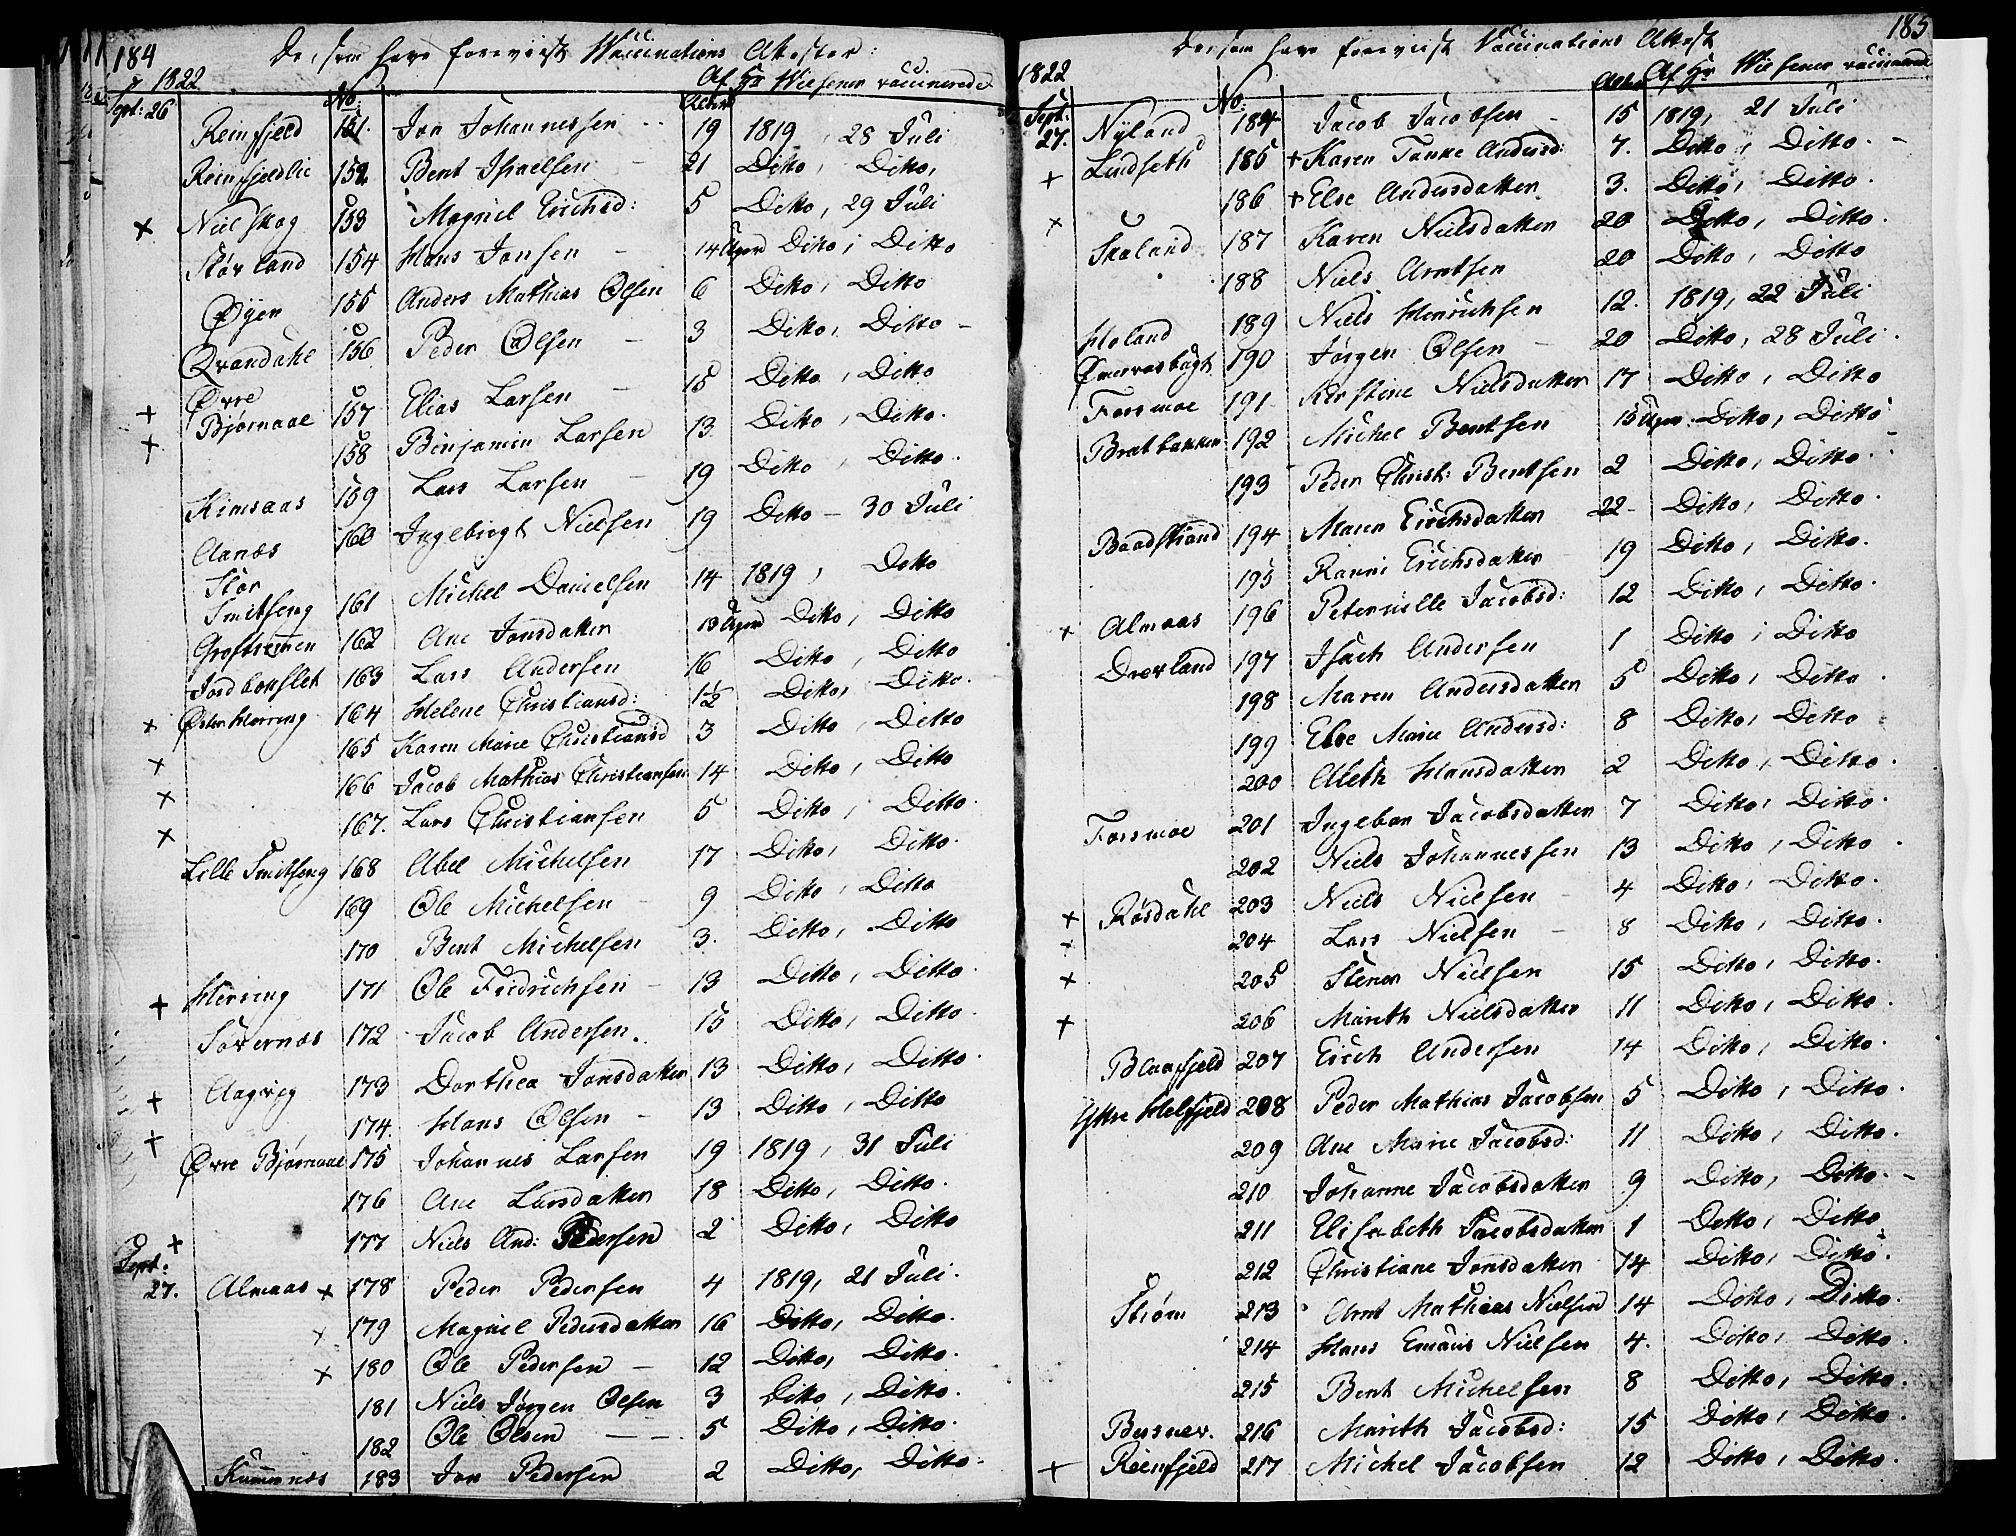 184
De, som have foreviist Vaccinations Attester:
1822
Sept: 26 No. Alder Af Hr Wiesener vaccinerede
Reinfjeld 151. Jon Johannessen 19 1819, 28 Juli
Reinfjeldlie 152 Bent Israelsen 21 Ditto, Ditto,
Nielskog 153 Magnil Erichsd: 5 Ditto, 29 Juli
+ Störland 154 Hans Jonsen 14 Uger Ditto, Ditto
Øyen 155 Anders Mathias Olsen 6 Ditto, Ditto
Qvandahl 156 Peder Olsen 3 Ditto, Ditto
Øvre
+ Bjørnaae 157 Elias Larsen 15 Ditto, Ditto
+ 158 Binjamin Larsen 13 Ditto, Ditto.
Kimsaas 159 Lars Larsen 19 Ditto, Ditto.
Aanæs 160 Ingebrigt Nielsen 19 Ditto - 30 Juli
Stor
Smitseng 161 Michel Danielsen 14 1819, Ditto
Groftremmen 162 Ane Jonsdatter 13 Uger Ditto, Ditto
Jordbroflet 163 Lars Andersen 16 Ditto, Ditto
+ Øster Herring 164 Helene Christiansd: 1½ Ditto, Ditto.
+ 165 Karen Marie Christiansd 3 Ditto, Ditto
+ 166 Jacob Mathias Christiansen 14 Ditto, Ditto
+ 167. Lars Christiansen 5 Ditto, Ditto.
Lille Smitseng 168 Abel Michelsen 17 Ditto, Ditto.
169 Ole Michelsen 9 Ditto, Ditto
170 Bent Michelsen 3. Ditto, Ditto
+ Herring 171 Ole Fridrichsen 13 Ditto, Ditto.
Søvernæs 172 Jacob Andersen. 15 Ditto, Ditto.
+ Aagvig 173 Dorthea Jonsdatter 13 Ditto, Ditto.
+ 174. Hans Olsen 13 Ditto, Ditto
Øvre Bjørnaae 175 Johannes Larsen 19 1819, 31 Juli
176 Ane Larsdatter 18 Ditto, Ditto.
+ 177 Niels And: Pedersen 2 Ditto, Ditto
Sept:
27. Almaas + 178 Peder Pedersen 4 1819, 21 Juli.
+ 179 Magnil Pedersdatter 16 Ditto, Ditto.
+ 180 Ole Pedersen 12 Ditto, Ditto.
181 Niels Jørgen Olsen 3 Ditto, Ditto.
182 Ole Olsen 5 Ditto, Ditto.
Kummnæs 183 Jon Pedersen 2 Ditto, Ditto.
185
De, som have foreviist Vaccinations Attest
1822
Sept: No: Alder Af Hr Wiesener vaccinerede
27. Nyland 184 Jacob Jacobsen 15 1819, 21 Juli
+ Lindseth 185 + Karen Tanke Andersd: 7. Ditto, Ditto.
+ 186 + Else Andersdatter 3. Ditto, Ditto.
Skaland 187 Karen Nielsdatter 20 Ditto, Ditto.
188 Niels Arntsen 20 Ditto, Ditto
Holand 189 Niels Hinrichsen 12. 1819, 22 Juli
190 Jørgen Olsen 20 Ditto, 28 Juli.
Forsmoe 191 Kirstine Nielsdatter 17 Ditto, Ditto
Bratbakken 192 Michel Bentsen 15 Uger. Ditto, Ditto
193 Peder Christ: Bentsen 2 Ditto, Ditto.
Baadstrand 194 Maren Erichsdatter 22 Ditto, Ditto.
195 Ranni Erichsdatter 19 Ditto, Ditto.
+ Almaas 196 Peternille Jacobsd: 12 Ditto, Ditto.
Drevland 197 Isach Andersen 1 Ditto, Ditto
198 Maren Andersdatter 5 Ditto, Ditto.
199 Else Marie Andersd: 8 Ditto, Ditto
200 Aleth Hansdatter 2 Ditto, Ditto.
Forsmoe 201 Ingebor Jacobsdatter 7 Ditto, Ditto.
202 Niels Johannessen 13 Ditto, Ditto.
+ Røsdahl 203 Niels Nielsen 4 Ditto, Ditto.
+ 204 Lars Nielsen 8 Ditto, Ditto.
+ 205 Stener Nielsen 15 Ditto, Ditto.
+ 206 Marith Nielsdatter 11 Ditto, Ditto.
Blaafjeld 207 Erich Andersen 14 Ditto, Ditto.
Yttre Helfjeld 208 Peder Mathias Jacobsen 5 Ditto, Ditto.
209 Ane Marie Jacobsd: 11 Ditto, Ditto.
210 Johanne Jacobsdatter 9 Ditto, Ditto.
211 Elisabeth Jacobsdatter 1 Ditto, Ditto
212 Christiane Jonsdatter 14 Ditto, Ditto.
Strøm 213 Arnt Mathias Nielsen 14 Ditto, Ditto.
214 Hans Emaus Nielsen 4. Ditto, Ditto.
215 Bent Michelsen 8 Ditto, Ditto.
Busnev. 216 Marith Jacobsd: 15 Ditto, Ditto.
+ Reinfjeld 217 Michel Jacobsen 12 Ditto, Ditto.